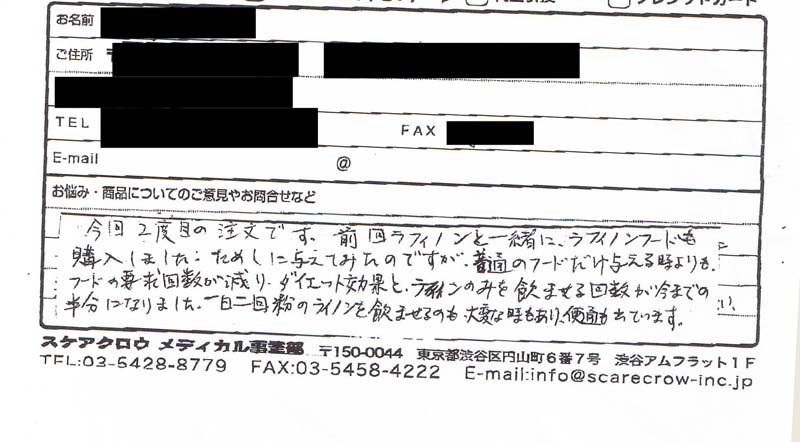 お名前
ご住所 〒
TEL FAX
E-mail @
お悩み・商品についてのご意見やお問合せなど
今回2度目の注文です。前回ラフィノンと一緒に、ラフィノンフードも
購入しました。ためしに与えてみたのですが、普通のフードだけ与える時よりも、
フードの要求回数が減り、ダイエット効果と、ラフィノンのみを飲ませる回数が今までの
半分になりました。一日二回粉のライノンを飲ませるのも大変な時もあり、便通も出ています。
スケアクロウ メディカル事業部 〒150-0044 東京都渋谷区円山町6番7号 渋谷アムフラット1F
TEL:03-5428-8779 FAX:03-5458-4222 E-mail:info@scarecrow-inc.jp